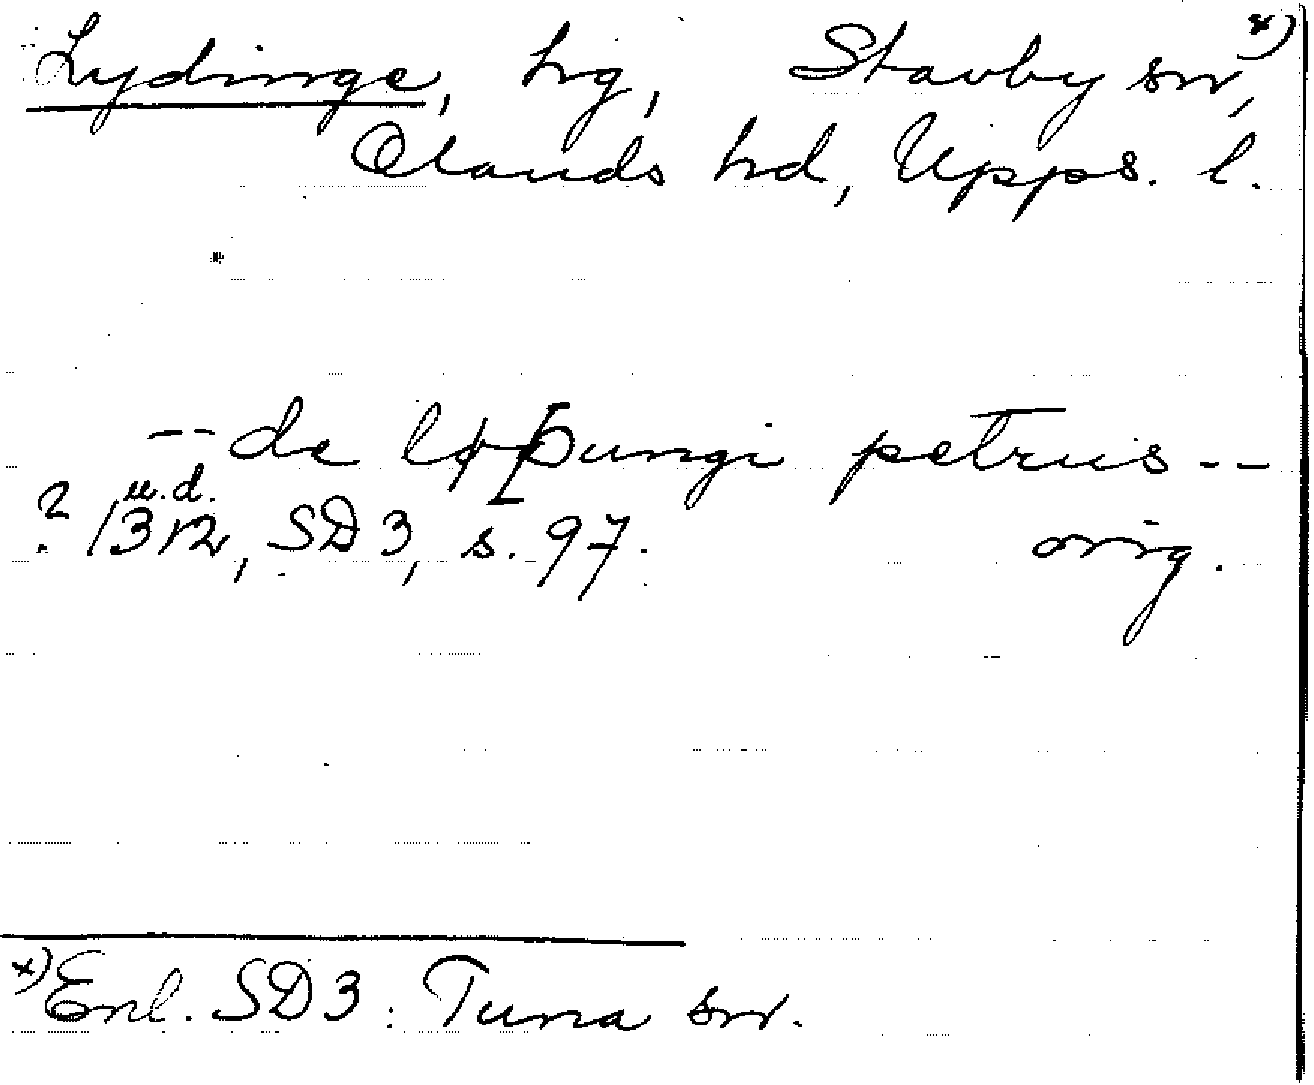 Lydinge, hg, Stavby sn, x)
Olands hd, Upps. l.
-- de løþungi petrus --
u.d.
? 1312, SD 3, s. 97. orig.
x) Enl. SD 3: Tuna sn.